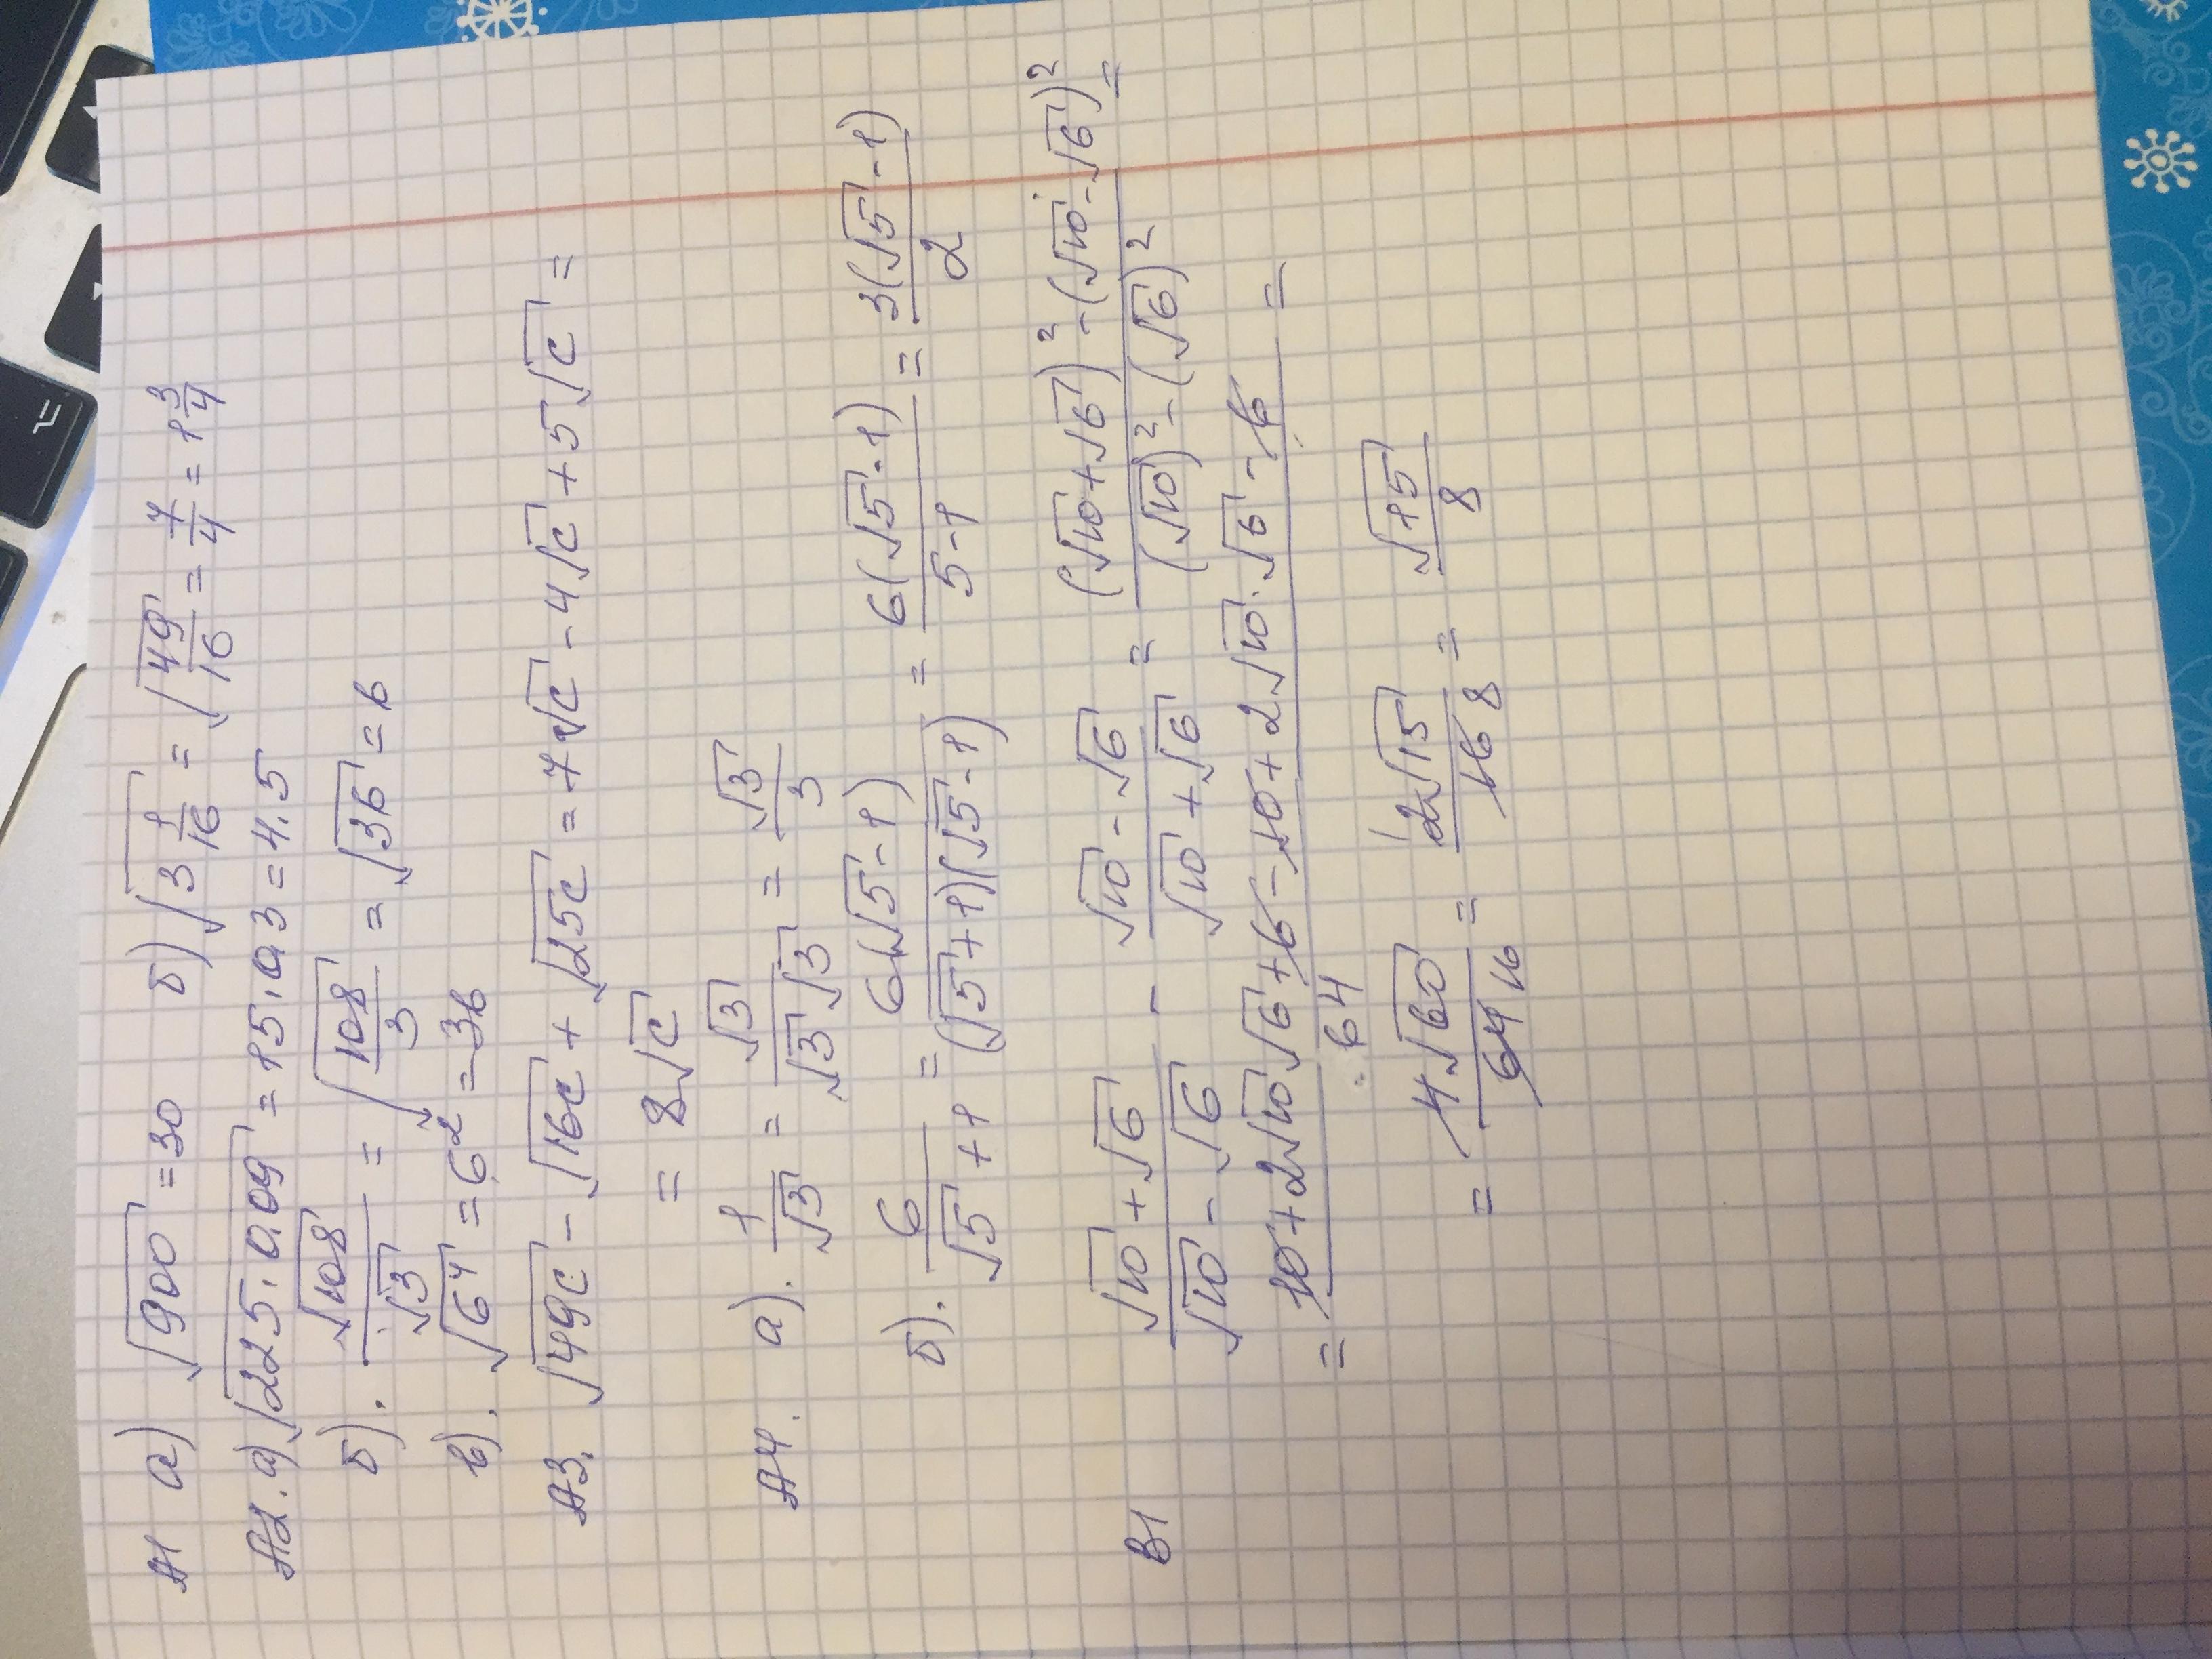 A1 а) √900 = 30 б) √(3 1/16) = √(49/16) = 7/4 = 1 3/4
A2. а) √(225·0,09) = 15·0,3 = 4.5
б). √108/√3 = √(108/3) = √36 = 6
в). √(6⁴) = 6² = 36
A3. √(49c) - √(16c) + √(25c) = 7√c - 4√c + 5√c =
= 8√c
A4. а). 1/√3 = √3/(√3 √3) = √3/3
б). 6/(√5+1) = 6(√5-1)/((√5+1)(√5-1)) = 6(√5-1)/(5-1) = 3(√5-1)/2
B1 (√10+√6)/(√10-√6) - (√10-√6)/(√10+√6) = ((√10+√6)² - (√10-√6)²)/((√10)² - (√6)²) =
= (10+2√10 √6+6-10+2√10·√6-6)/64 =
= 4√60/64 16 = 2√15/16 8 = √15/8